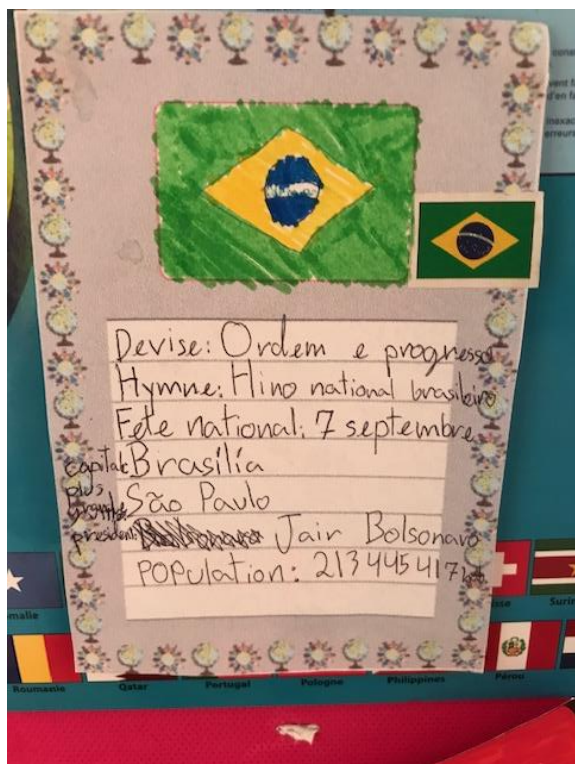 Devise: Ordem e progresso
Hymne: Hino national brasileiro
Fête national: 7 septembre
capitale Brasília
plus grande São Paulo
président: Jair Bolsonaro
POPulation: 213 445 417
malie
Roumanie
Qatar
Portugal
Pologne
Philippines
Pérou
isse
Surin
cons
vent f
d'en fa
inexac
erreurs